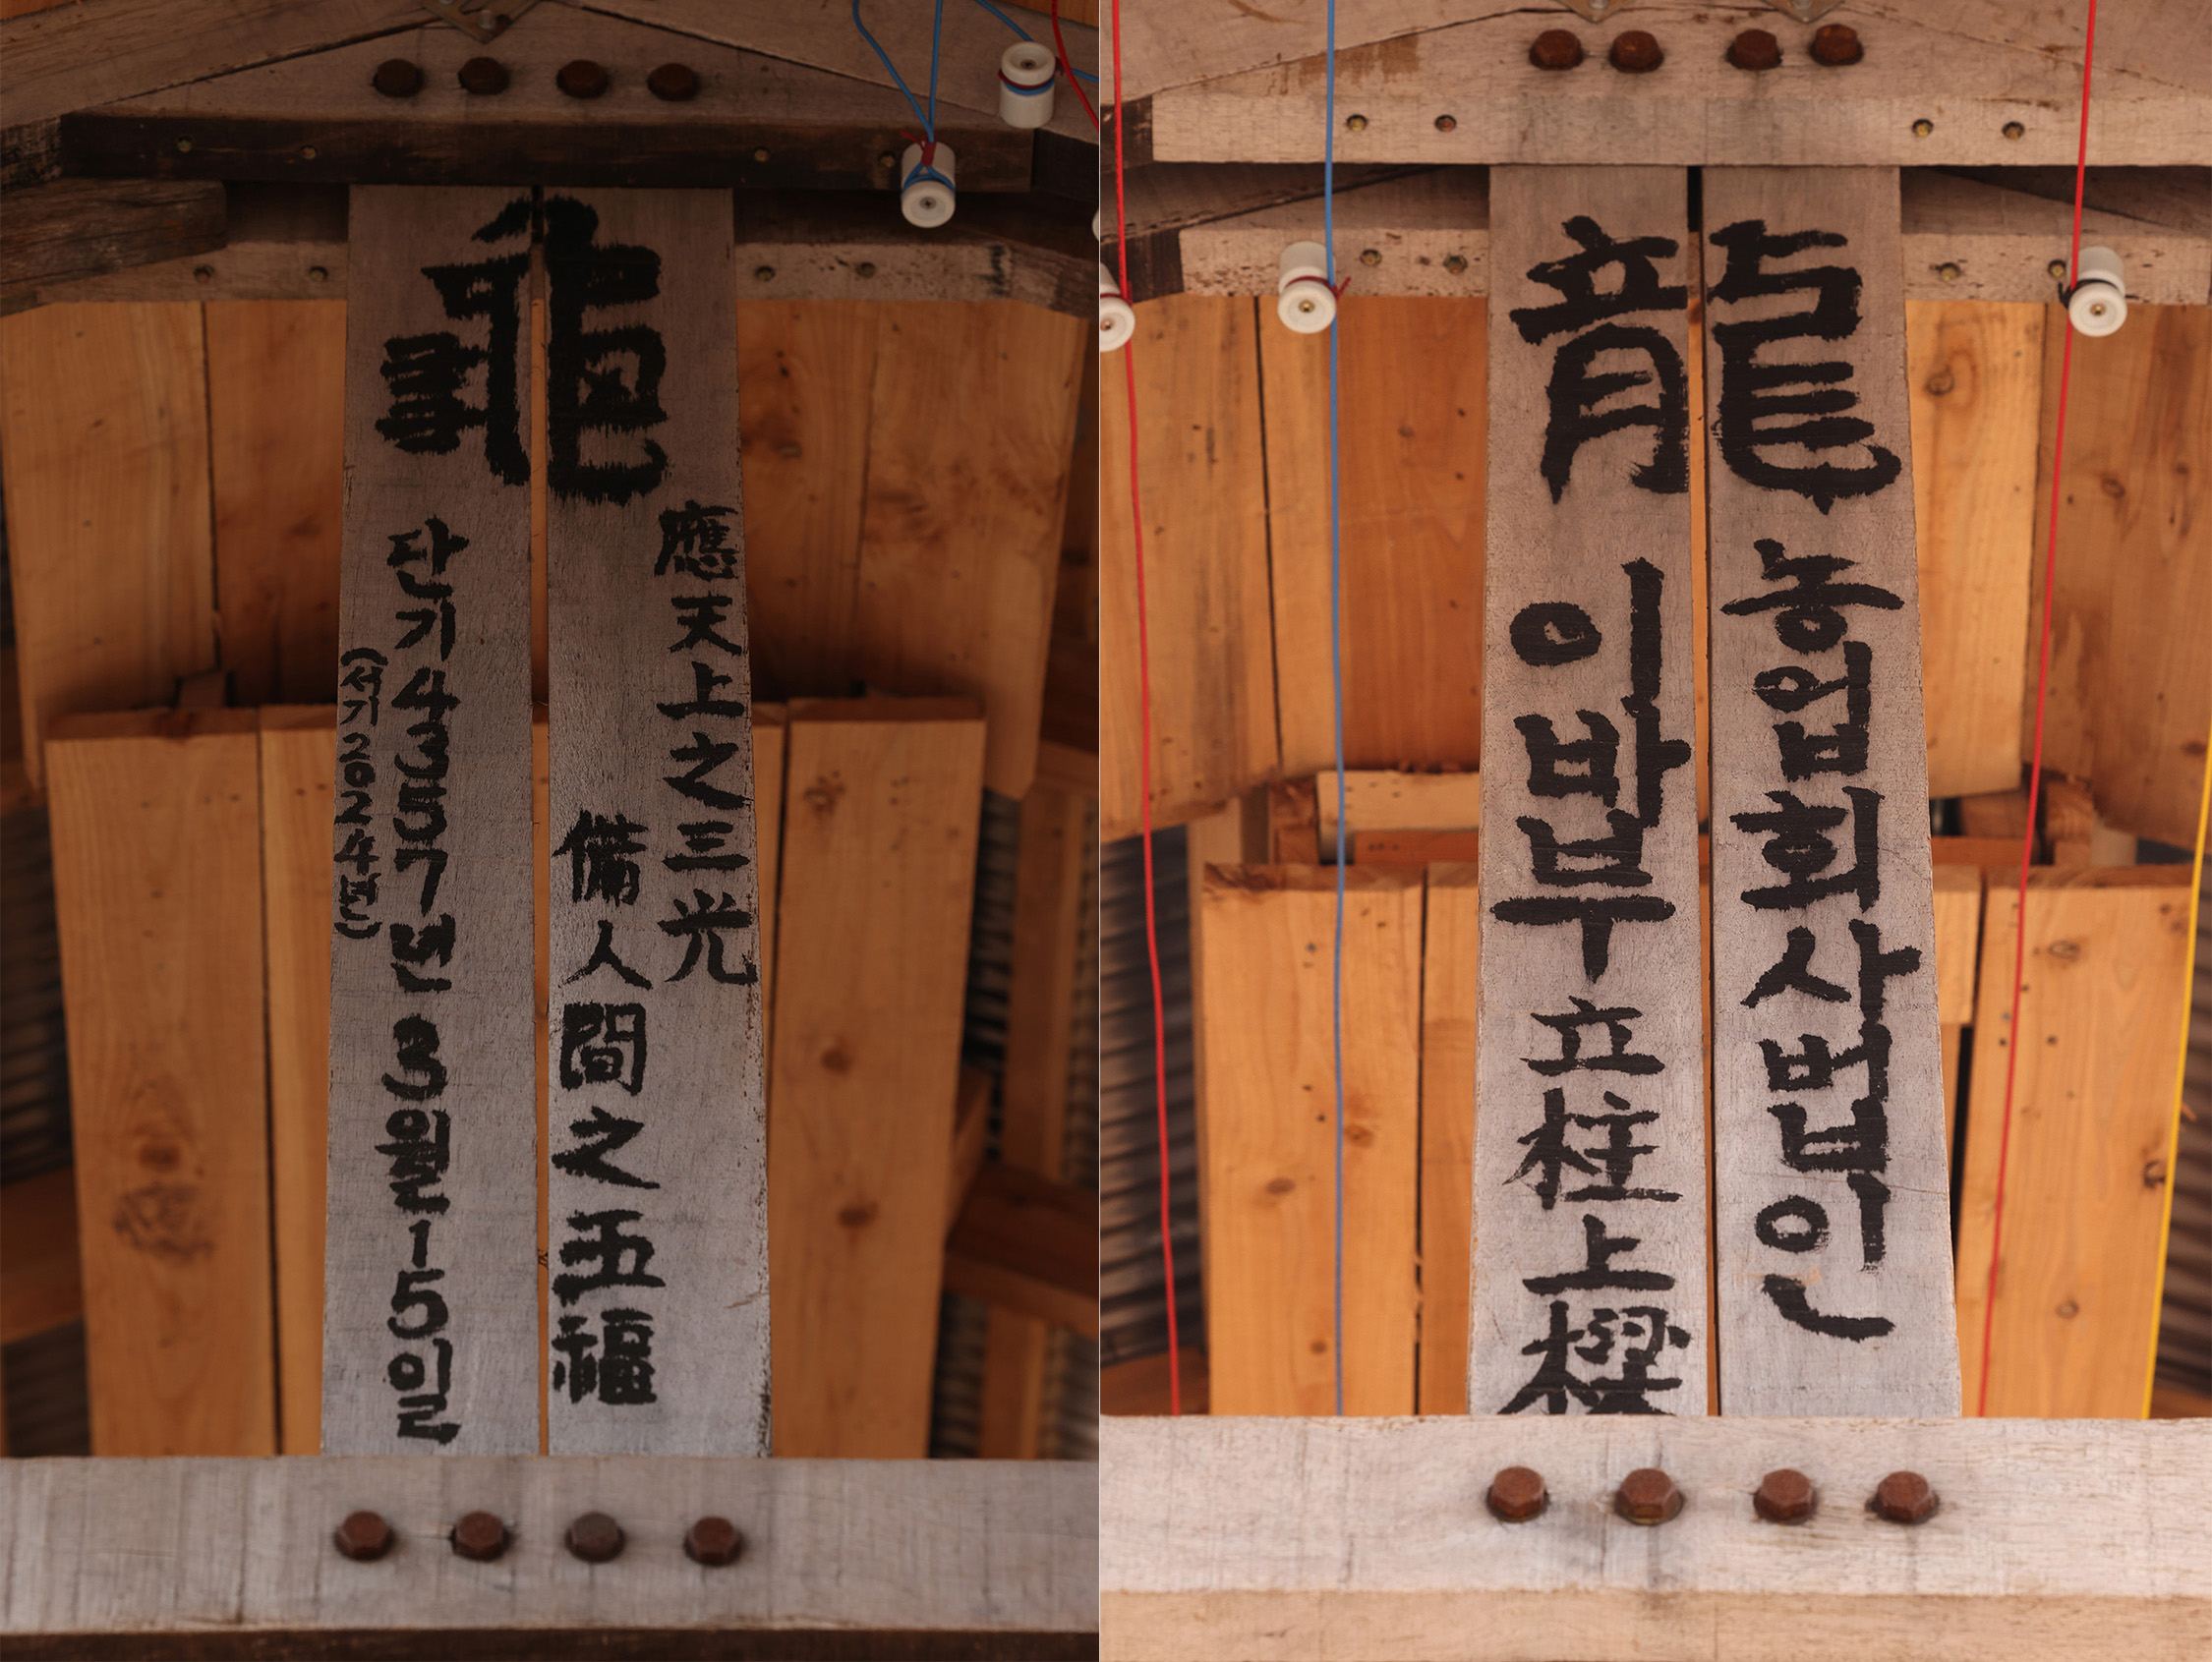 龜
應天上之三光
備人間之五福
단기4357년 3월15일
(서기2024년)
龍
농업회사법인
이바부 立柱上樑